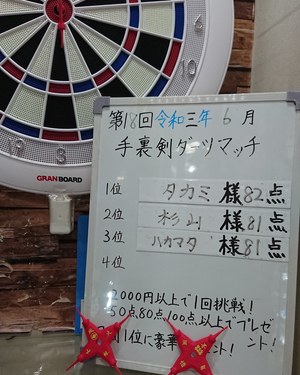 GRANBOARD
第18回令和三年6月
手裏剣ダーツマッチ
1位 タカミ 様 82点
2位 杉山 様 81点
3位 ハカマタ 様 81点
4位
2000円以上で1回挑戦!
50点80点100点以上でプレゼント!
1位に豪華 ント!